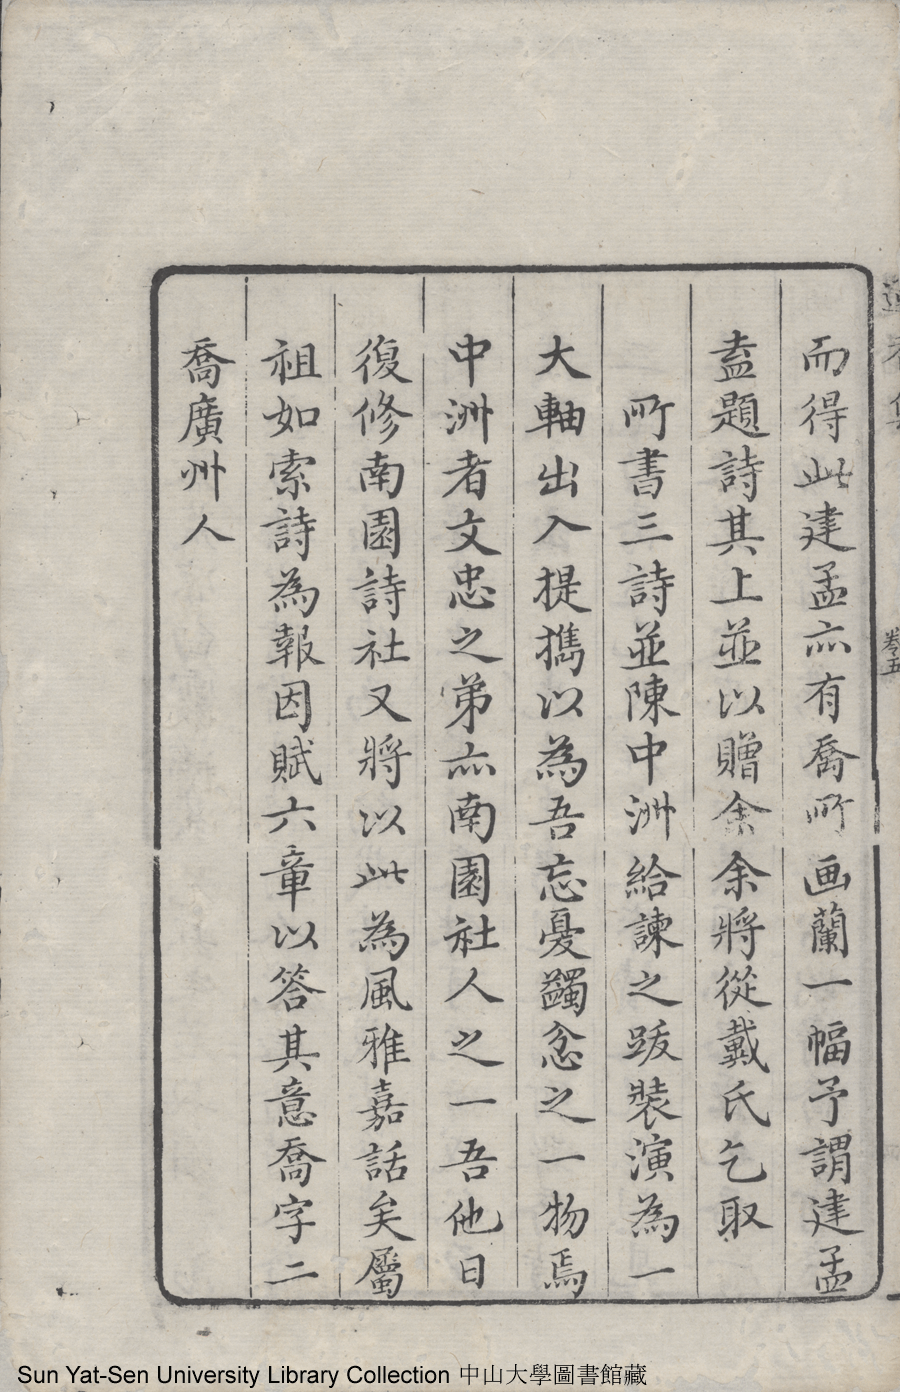 而得此建孟亦有喬所画蘭一幅予謂建孟
盍題詩其上並以贈余余將從戴氏乞取
所書三詩並陳中洲給諫之跋裝演為一
大軸出入提擕以為吾忘憂蠲忿之一物焉
中洲者文忠之弟亦南園社人之一吾他日
復修南園詩社又將以此為風雅嘉話矣屬
祖如索詩為報因賦六章以答其意喬字二
喬廣州人
卷五
Sun Yat-Sen University Library Collection 中山大學圖書館藏